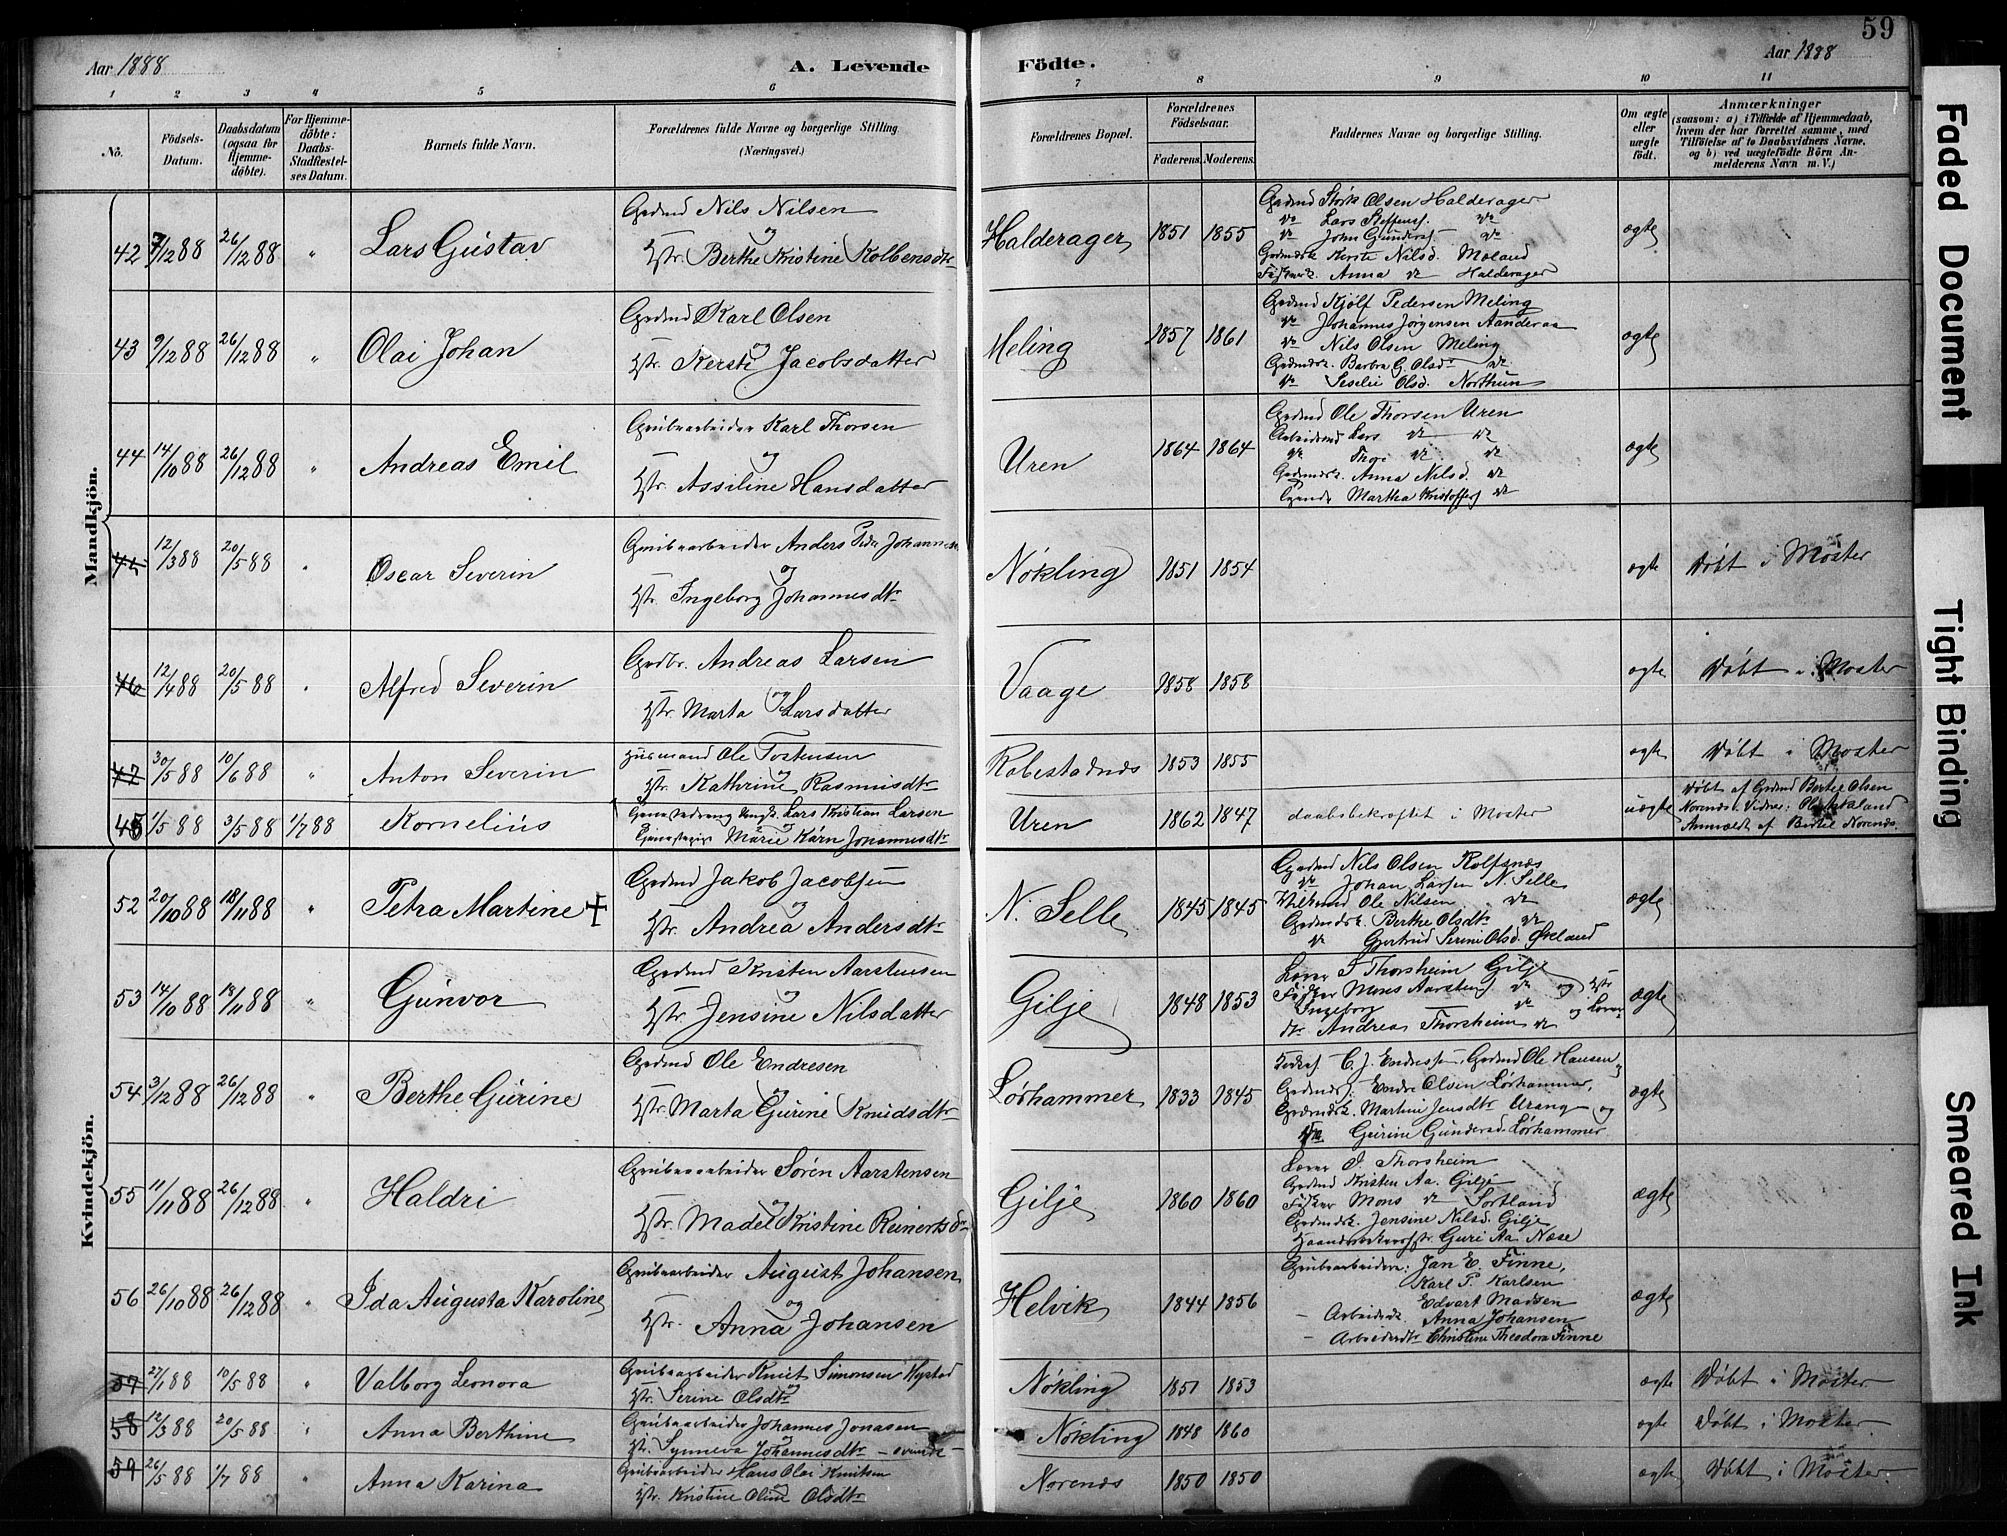 59
Aar 1888
A. Levende
Födte.
Aar 1888
1 2 3 4 5 6 7 8 9 10 11
No.
Födsels-Datum.
Daabsdatum (ogsaa for Hjemmedöbte).
For Hjemmedöbte: Daabs-Stadfæstelses Datum.
Barnets fulde Navn.
Forældrenes fulde Navne og borgerlige Stilling (Næringsvei.)
Forældrenes Bopæl.
Forældrenes Födselsaar.
Faderens. Moderens.
Faddernes Navne og borgerlige Stilling.
Om ægte eller uægte födt.
Anmærkninger
(saasom: a) i Tilfælde af Hjemmedaab, hvem der har forrettet samme, med Tilföielse af to Daabsvidners Navne, og b) ved uægtefödte Börn Anmelderens Navn m. V.)
Mandkjön.
42 7/12 88 26/12 88 " Lars Gustav
Grdmd Nils Nilsen
og
Hstr. Berthe Kristine Kolbensdtr
Halderager 1851 1855
Gardmd Størk Olsen Halderager
do Lars Steffens. do
do John Gunders. do
Grdmdsk. Kerste Nilsd. Moland
Anna do Halderager
ægte
43 9/12 88 26/12 88 " Olai Johan
Grdmd Karl Olsen
og
Hstr. Kersti Jacobsdatter
Meling 1857 1861
Grdmd Kjølf Pedersen Meling
do Johannes Jørgensen Aanderaa
do Nils Olsen Meling
Grdmdsk. Barbra G. Olsdr do
do Seselie Olsd. Northun
ægte
44 14/10 88 26/12 88 " Andreas Emil
Grubearbeider Karl Thorsen
og
Hstr. Assiline Hansdatter
Uren 1864 1864
Grdmd Ole Thorsen Uren
Arbeidsmd Lars do do
do Thor do do
Grdmdsk. Anna Nilsd. do
Martha Kristoffers do
ægte
45 12/3 88 20/5 88 " Oscar Severin
Grubearbeider Anders Peder Johannes
og
Hstr. Ingeborg Johannesdtr
Nøkling 1851 1854
ægte Døbt i Moster
46 12/4 88 20/5 88 " Alfred Severin
Grdbr. Andreas Larsen
og
Hstr Marta Larsdatter
Vaage 1858 1858
ægte Døbt i Moster
47 30/5 88 10/6 88 " Anton Severin
Husmand Ole Tostensen
og
Hstr. Kathrine Rasmusdtr
Robestadnes 1853 1855
ægte Døbt i Moster
45 1/5 88 3/5 88 1/7 88 Kornelius
Lars Kristian Larsen
og
Marie Karn Johannesdtr
Uren 1862 1847
daabsbekræftet i Moster
uægte
Døbt af Grdmd Bertel Olsen
Norenes. Vidner: Ole
Anmeldt af Bertel Norenes.
Kvindekjön.
52 20/10 88 18/11 88 " Petra Martine +
Grdmd Jakob Jacobsen
og
Hstr. Andrea Andersdtr
N. Selle 1845 1845
Grdmd Nils Olsen Rolfsnæs
do Johan Larsen N. Selle
Ole Nilsen do
Grdmdsk. Berthe Olsdtr. do
do Gjertrud Serine Olsd. Økland
ægte
53 14/10 88 18/11 88 " Gunvor
Grdmd Kristen Aarstensen
og
Hstr Jensine Nilsdatter
Gilje 1848 1853
Lærer I Thorsheim Gilje
Mons Aarstens. do og Hstr
Ingeborg do og Lærer
Andrea Thorsheim do
ægte
54 3/12 88 26/12 88 " Berthe Gurine
Grdmd Ole Endresen
og
Hstr. Marta Gurine Knudsdtr
Lørhammer 1833 1845
C. J. Endresen, Grdmd Ole Hansen
Endre Olsen Lørhammer,
Grdmdsk. Martini Jensdtr Urang og
Gurine Gundersd. Lørhammer.
ægte
55 11/11 88 26/12 88 " Haldri
Grubearbeider Søren Aarstensen
og
Hstr. Madel Kristine Reinertsdr
Gilje 1860 1860
Lærer I. Thorsheim
Grdmd Kristen Aa. Gilje
Mons do Sortland
Grdmdsk. Jensine Nilsd. Gilje
Guri Aa. Næse
ægte
56 26/10 88 26/12 88 " Ida Augusta Karoline
Grubearbeider August Johansen
og
Hstr. Anna Johansen
Helvik 1844 1856
Grubearbeidere: Jan E. Finne,
Karl P. Karlsen
Edvart Madsen
- Arbeidsk. Anna Johansen
- Arbeiderdtr Christine Theodora Finne
ægte
57 27/1 88 10/5 88 " Valborg Leonora
Grubearbeider Knut Simonsen Hystad
og
Hstr. Serine Olsdtr
Nøkling 1851 1853
ægte Døbt i Moster
58 12/3 88 20/5 88 " Anna Berthine
Grubearbeider Johannes Jonasen
Hstr. Synneva Johannesdtr
Nøkling 1848 1860
ægte Døbt i Moster
59 26/5 88 1/7 88 Anna Karina
Grubearbeider Hans Olai Knutsen
og
Hstr. Kristine Oline Olsdtr
Norenes 1850 1850
ægte Døbt i Moster.
Faded Document
Tight Binding
Smeared Ink